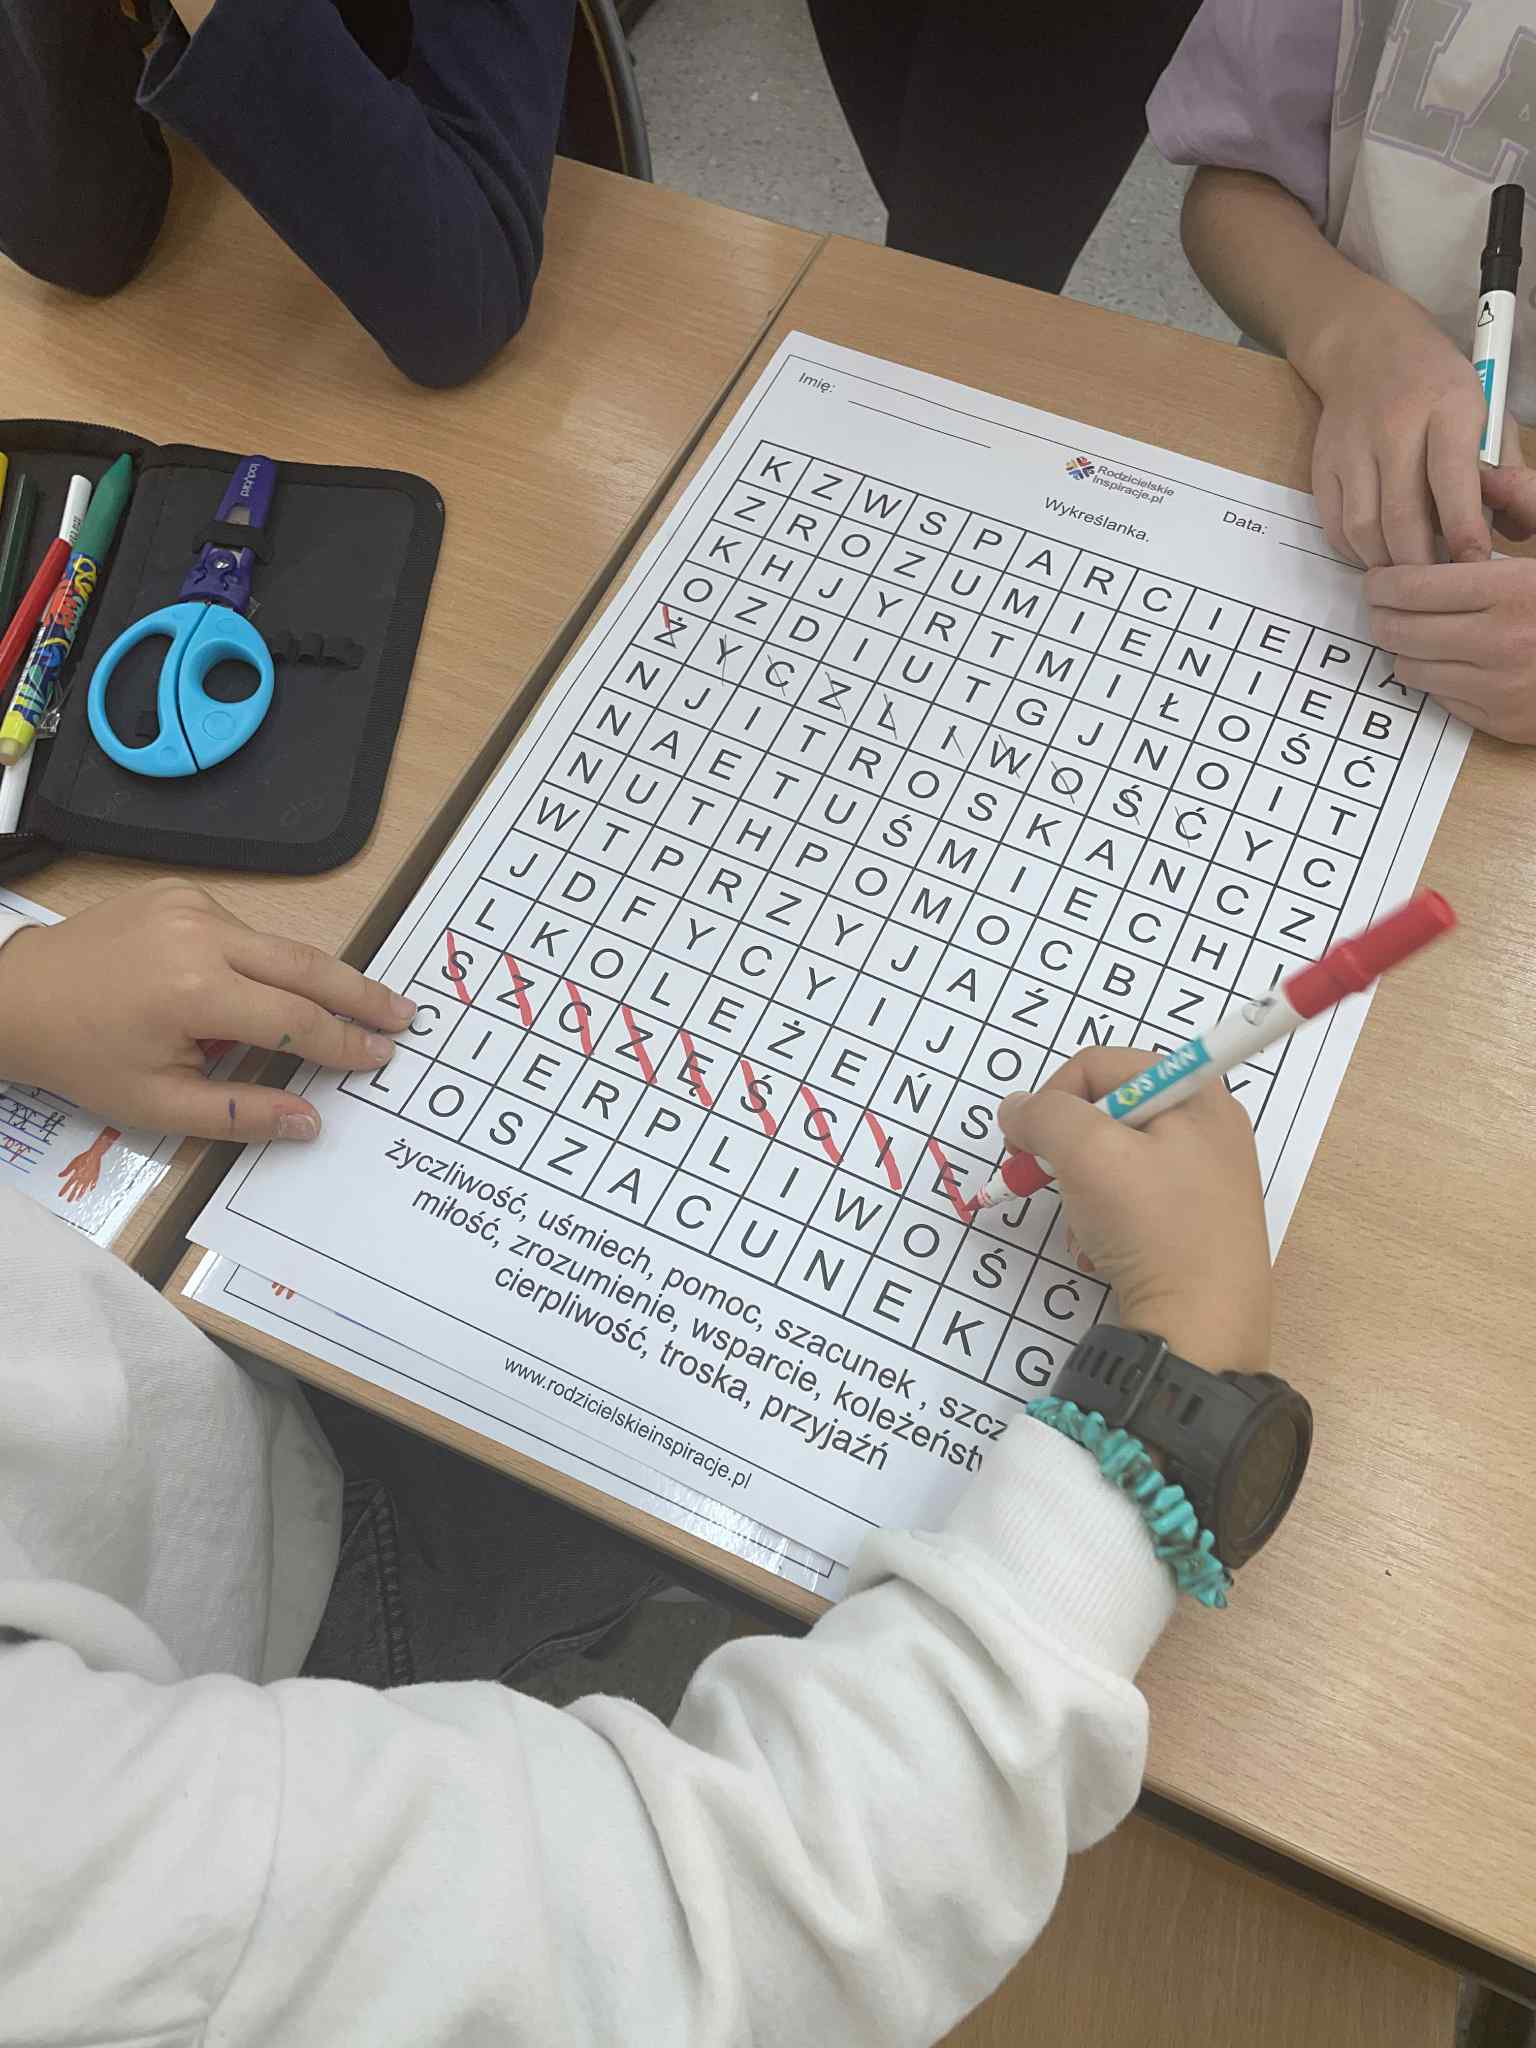 Imię:
Rodzicielskie
Inspiracje.pl
Data:
Wykreślanka.
K Z W S P A R C I E P A
Z R O Z U M I E N I E B
K H J Y R T M I Ł O Ś Ć
O Z D I U T G J N O I T
Ż Y C Z L I W O Ś Ć Y C
N J I T R O S K A N C Z
N A E T U Ś M I E C H
N U T H P O M O C B Z
W T P R Z Y J A Ź Ń
J D F Y C Y I J O
L K O L E Ż E Ń S
S Z C Z Ę Ś C I E J
C I E R P L I W O Ś Ć
L O S Z A C U N E K G
życzliwość, uśmiech, pomoc, szacunek , szcz
miłość, zrozumienie, wsparcie, koleżeńst
cierpliwość, troska, przyjaźń
www.rodzicielskieinspiracje.pl